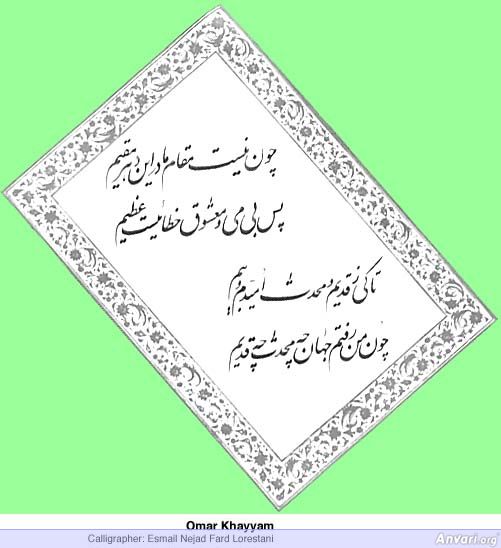 چون نیست مقام ما در این دهر مقیم
پس بی می و معشوق خطائیست عظیم
تا کی ز قدیم و محدث امیدم و بیم
چون من رفتم جهان چه محدث چه قدیم
Omar Khayyam
Calligrapher: Esmail Nejad Fard Lorestani
Anvari.org